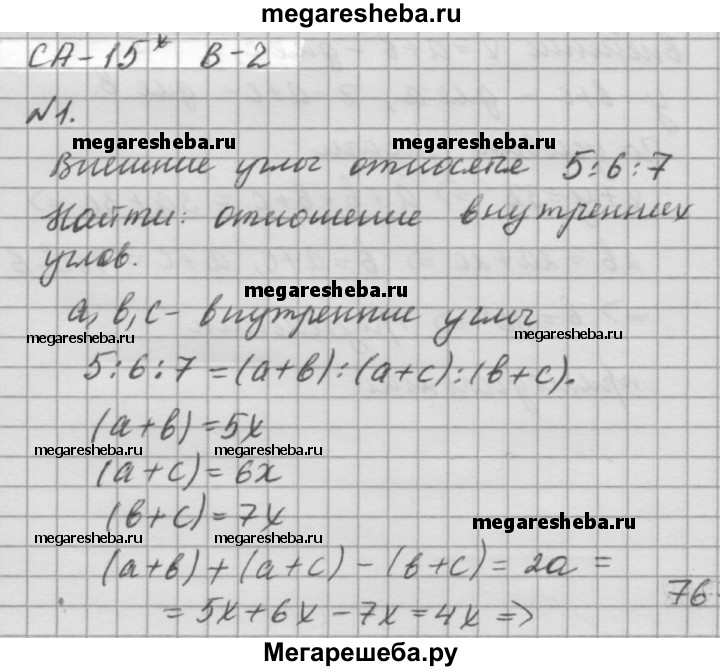 megaresheba.ru
СА-15* В-2
№1.
megaresheba.ru megaresheba.ru
Внешние углы относятся 5:6:7
Найти: отношение внутренних
углов.
megaresheba.ru
а, в, с - внутренние углы
megaresheba.ru megaresheba.ru
5:6:7 = (а+в):(а+с):(в+с).
(а+в) = 5х
megaresheba.ru megaresheba.ru
(а+с) = 6х
(в+с) = 7х
megaresheba.ru megaresheba.ru megaresheba.ru
(а+в) + (а+с) - (в+с) = 2а =
= 5х + 6х - 7х = 4х =>
76
Мегарешеба.ру